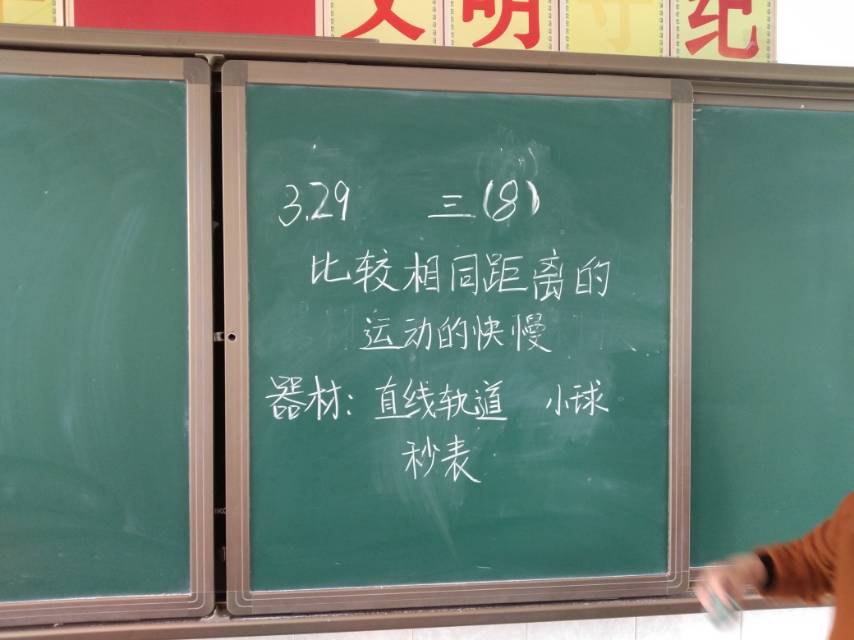 文明守纪
3.29 三(8)
比较相同距离的
运动的快慢
器材:直线轨道 小球
秒表